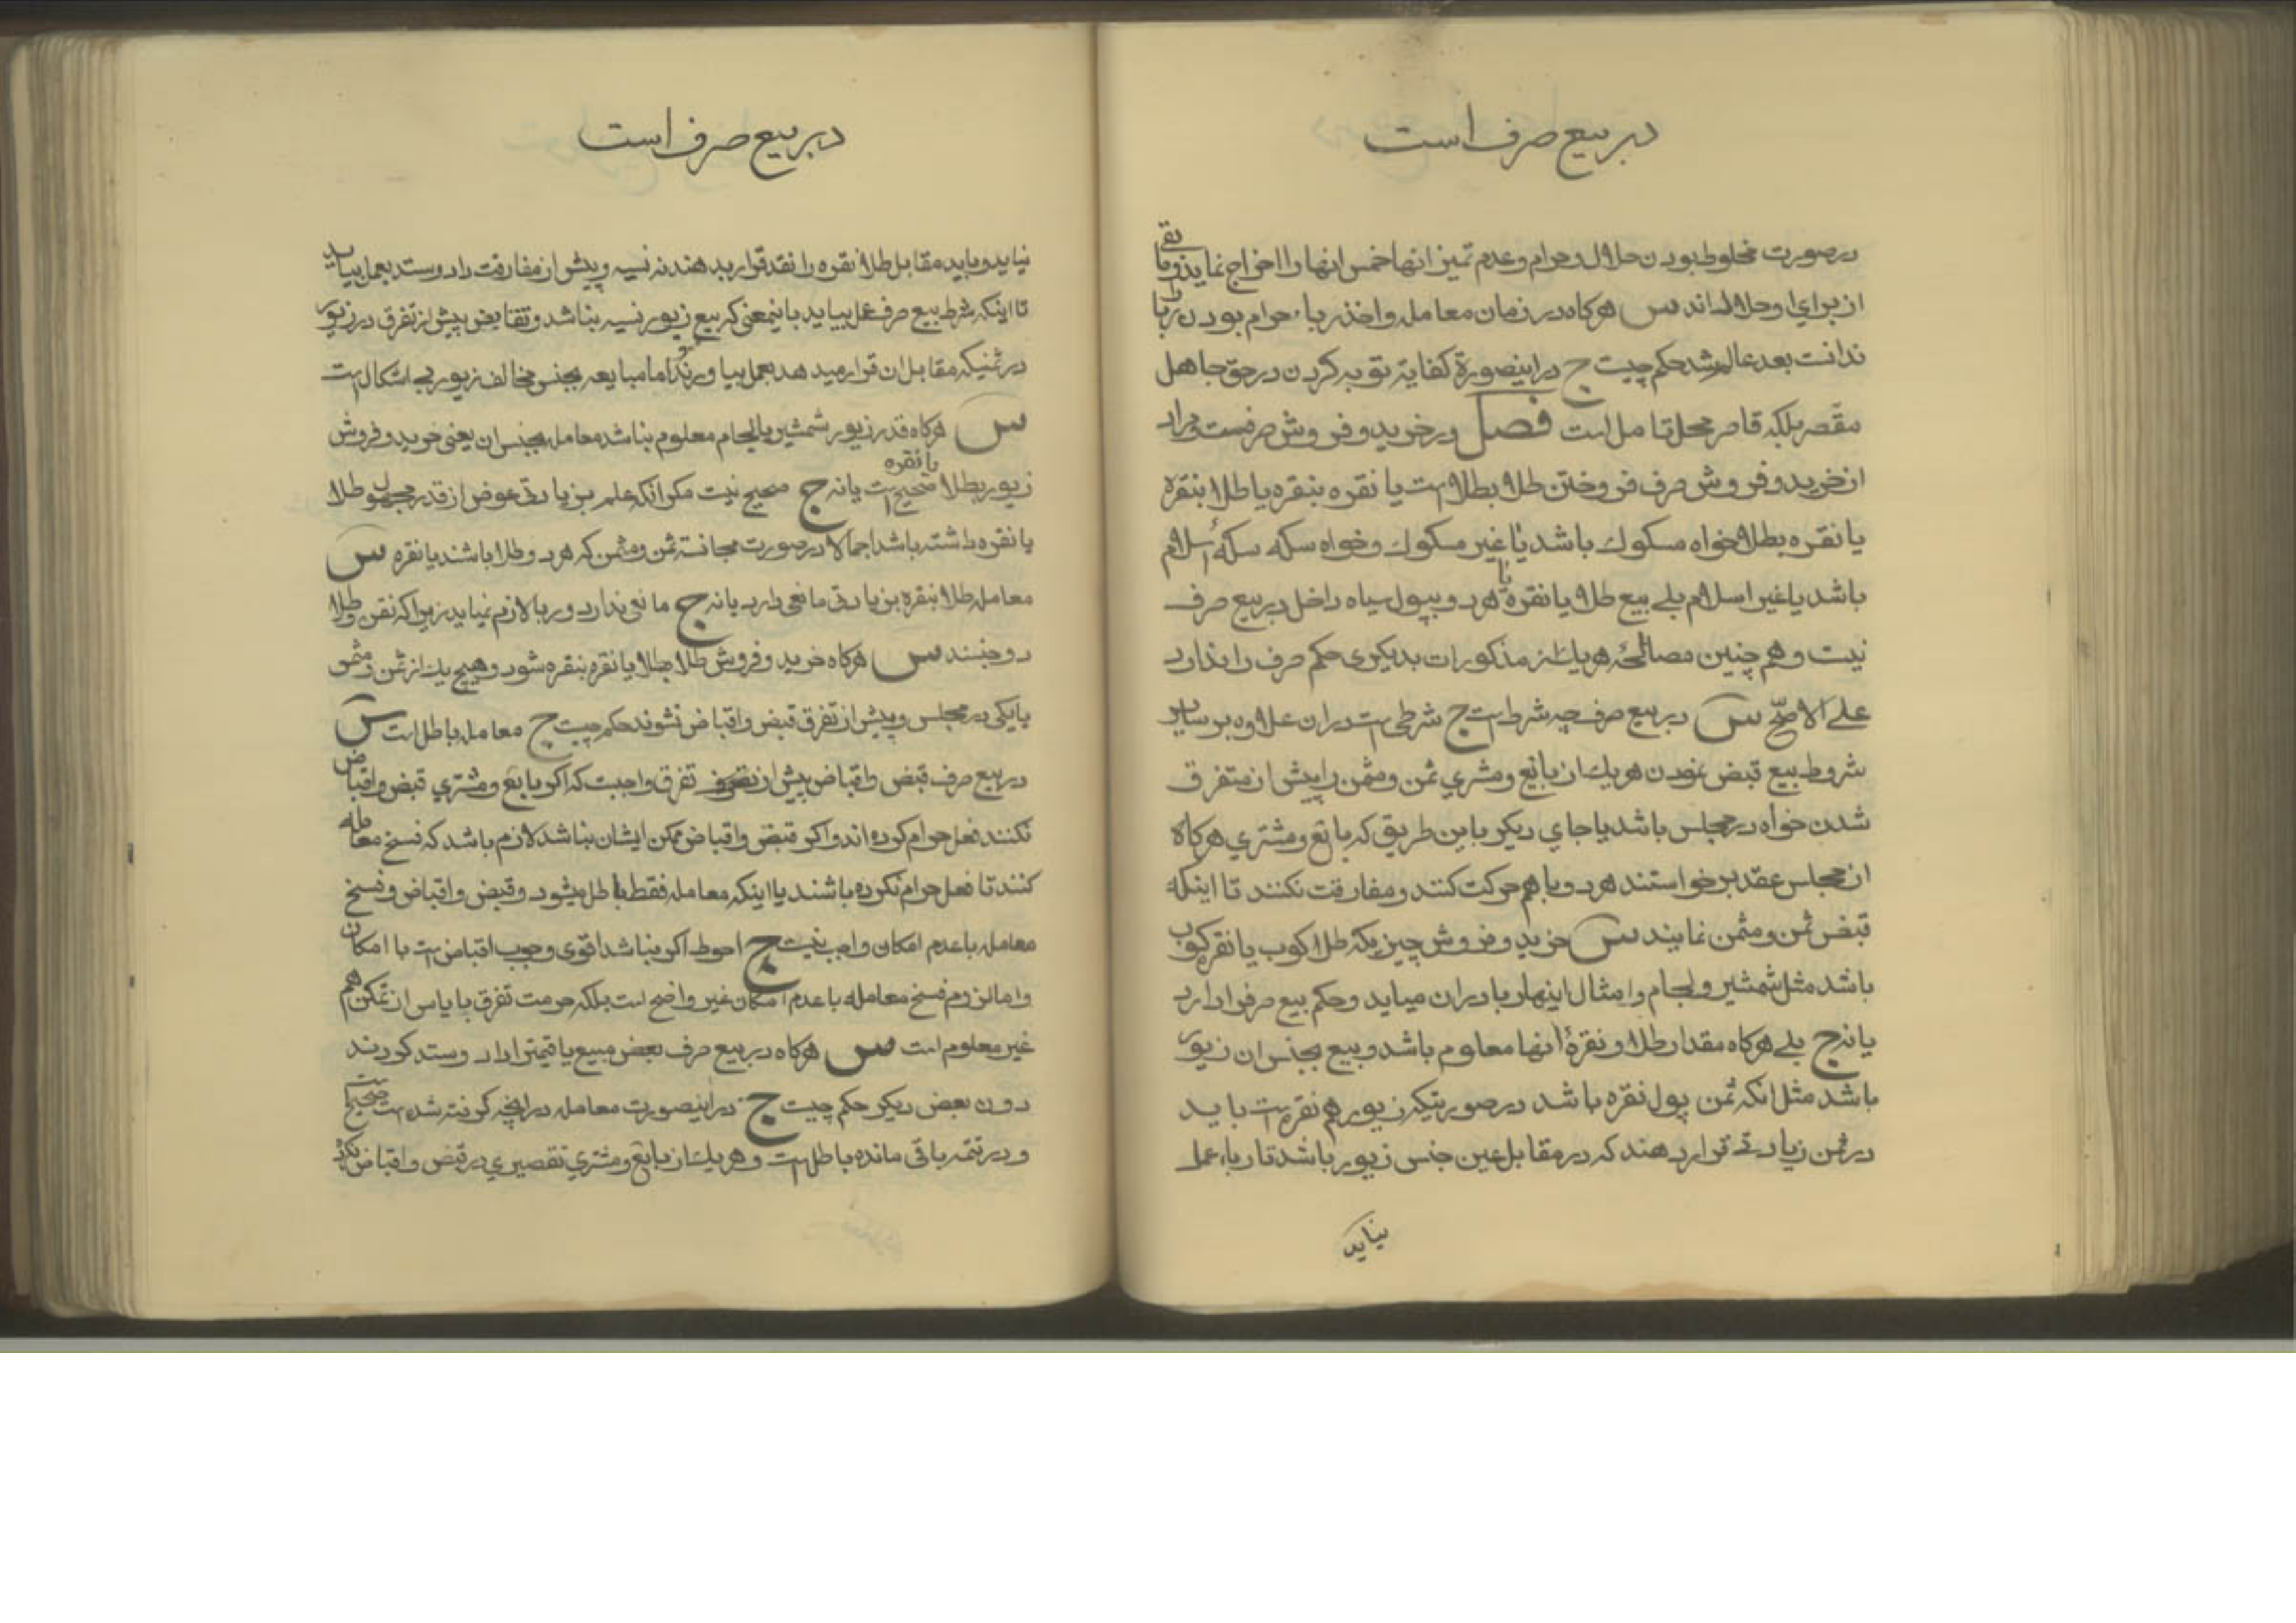 در بیع صرف است
در صورت مخلوط بودن حلال و حرام و عدم تمیز انها خمس انها را اخراج نماید و باقی
از برای او حلال اند س هرکاه در زمان معامله و اخذ ربا حرام بودن ربا را
ندانست بعد عالم شد حکم چیست ج در اینصورة کفایة توبه کردن در حق جاهل
مقصر بلکه قاصر محل تامل است فصل در خرید و فروش صرفست مراد
از خرید و فروش صرف فروختن طلا بطلا است یا نقره بنقره یا طلا بنقره
یا نقره بطلا خواه مسکوك باشد یا غیر مسکوك و خواه سکه سکهٔ اسلام
باشد یا غیر اسلام بلے بیع طلا یا نقره یا هر دو بپول سیاه داخل در بیع صرف
نیست و هم چنین مصالحهٔ هر یك از مذکورات بدیکری حکم صرف را ندارد
علے الاصحّ س در بیع صرف چه شرط است ج شرطی است در ان علاوه بر سایر
شروط بیع قبض نمودن هر یك از بایع و مشتري ثمن و مثمن را پیش از متفرق
شدن خواه در مجلس باشد یا جاي دیکر باین طریق که بایع و مشتري هرکاه
از مجلس عقد بر خواستند هر دو با هم حرکت کنند و مفارقت نکنند تا اینکه
قبض ثمن و مثمن نمایند س خرید و فروش چیزیکه طلا کوب یا نقره کوب
باشد مثل شمشیر و لجام و امثال اینها ربا در ان میاید و حکم بیع صرف را دارد
یا نه ج بلے هرکاه مقدار طلا و نقرهٔ انها معلوم باشد و بیع بجنس ان زیور
باشد مثل انکه ثمن پول نقره باشد در صورتیکه زیور هم نقره است باید
در ثمن زیادتے قرار دهند که در مقابل عین جنس زیور باشد تا ربا بعمل
نیاید
در بیع صرف است
نیاید و باید مقابل طلا نقره را نقد قرار بدهند نه نسیه و پیش از مفارقت داد و ستد بعمل بیاید
تا اینکه شرط بیع صرف عمل بیاید باینمعنی که بیع زیور نسیه بناشد و تقابض پیش از تفرق در زیور
در ثمنیکه مقابل ان قرار میدهد بعمل بیاورند و اما مبایعه بجنس مخالف زیور بے اشکال است
س هرکاه قدر زیور شمشیر یا لجام معلوم بناشد معامله بجنس ان یعنی خرید و فروش
زیور بطلا یا نقره صحیح است یا نه ج صحیح نیست مکر انکه علم بزیادتی عوض از قدر مجهول طلا
یا نقره داشته باشد اجمالا در صورت مجانسة ثمن و مثمن که هر دو طلا باشند یا نقره س
معامله طلا بنقره بزیادتی مانعی دارد یا نه ج مانعی ندارد و ربا لازم نمیاید زیرا که نقره و طلا
دو جنسند س هرکاه خرید و فروش طلا بطلا یا نقره بنقره شود و هیچ یك از ثمن و مثمن
یا یکی در مجلس و پیش از تفرق قبض و اقباض نشوند حکم چیست ج معامله باطل است س
در بیع صرف قبض و اقباض پیش از تفرق واجبت که اکر بایع و مشتري قبض و اقباض
نکنند فعل حرام کرده اند و اکر قبض و اقباض ممکن ایشان بناشد لازم باشد که فسخ معامله
کنند تا فعل حرام نکرده باشند یا اینکه معامله فقط باطل میشود و قبض و اقباض و فسخ
معامله با عدم امکان واجب نیست ج احوط اکر بناشد اقوی وجوب اقباض است با امکان
و اما لزوم فسخ معامله با عدم امکان غیر واضح است بلکه حرمت تفرق با یاس از تمکن هم
غیر معلوم است س هرکاه در بیع صرف بعض مبیع یا قیمتر ا داد و ستد کردند
دون بعض دیکر حکم چیست ج در اینصورت معامله در انچه کرفته شده است صحیح است
و در تتمه باقی مانده باطل است و هر یك از بایع و مشتري تقصیری در قبض و اقباض نکرد